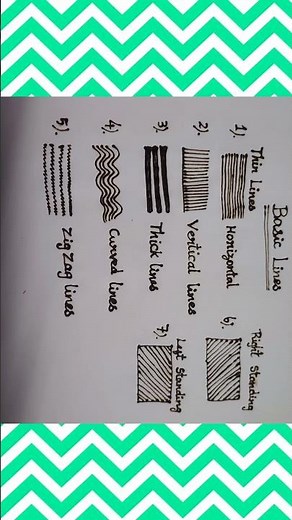 Basic Lines
Thin Lines
1). Horizontal
2). Vertical lines
3). Thick lines
4). Curved lines
5). Zig Zag lines
6). Right Standing
7). Left Standing